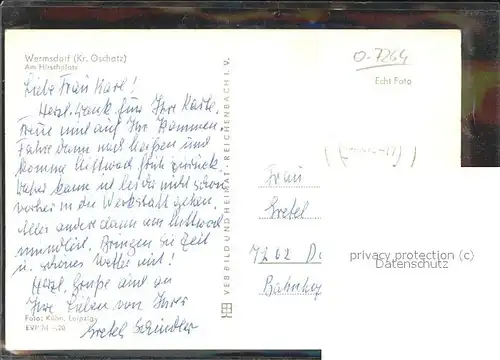 Wermsdorf (Kr. Oschatz)
Am Hirschplatz
Liebe Frau Karl!
Herzl. Dank für Ihre Karte.
Freue mich auf Ihr Kommen.
Fahre dann nach Meißen und
komme Mittwoch früh zurück.
Daher kann ich leider nicht schon
vorher in die Werkstatt gehen.
Alles andere dann am Mittwoch
mündlich. Bringen Sie Zeit
u. schönes Wetter mit!
Herzl. Grüße und an
Ihre Lieben von Ihrer
Gretel Schindler
Foto: Kühn, Leipzig
EVP M -,20
VEB BILD UND HEIMAT · REICHENBACH I. V.
O-7264
Echt Foto
Frau
Gretel
7262 Da
Bahnhof
privacy protection (c)
Datenschutz